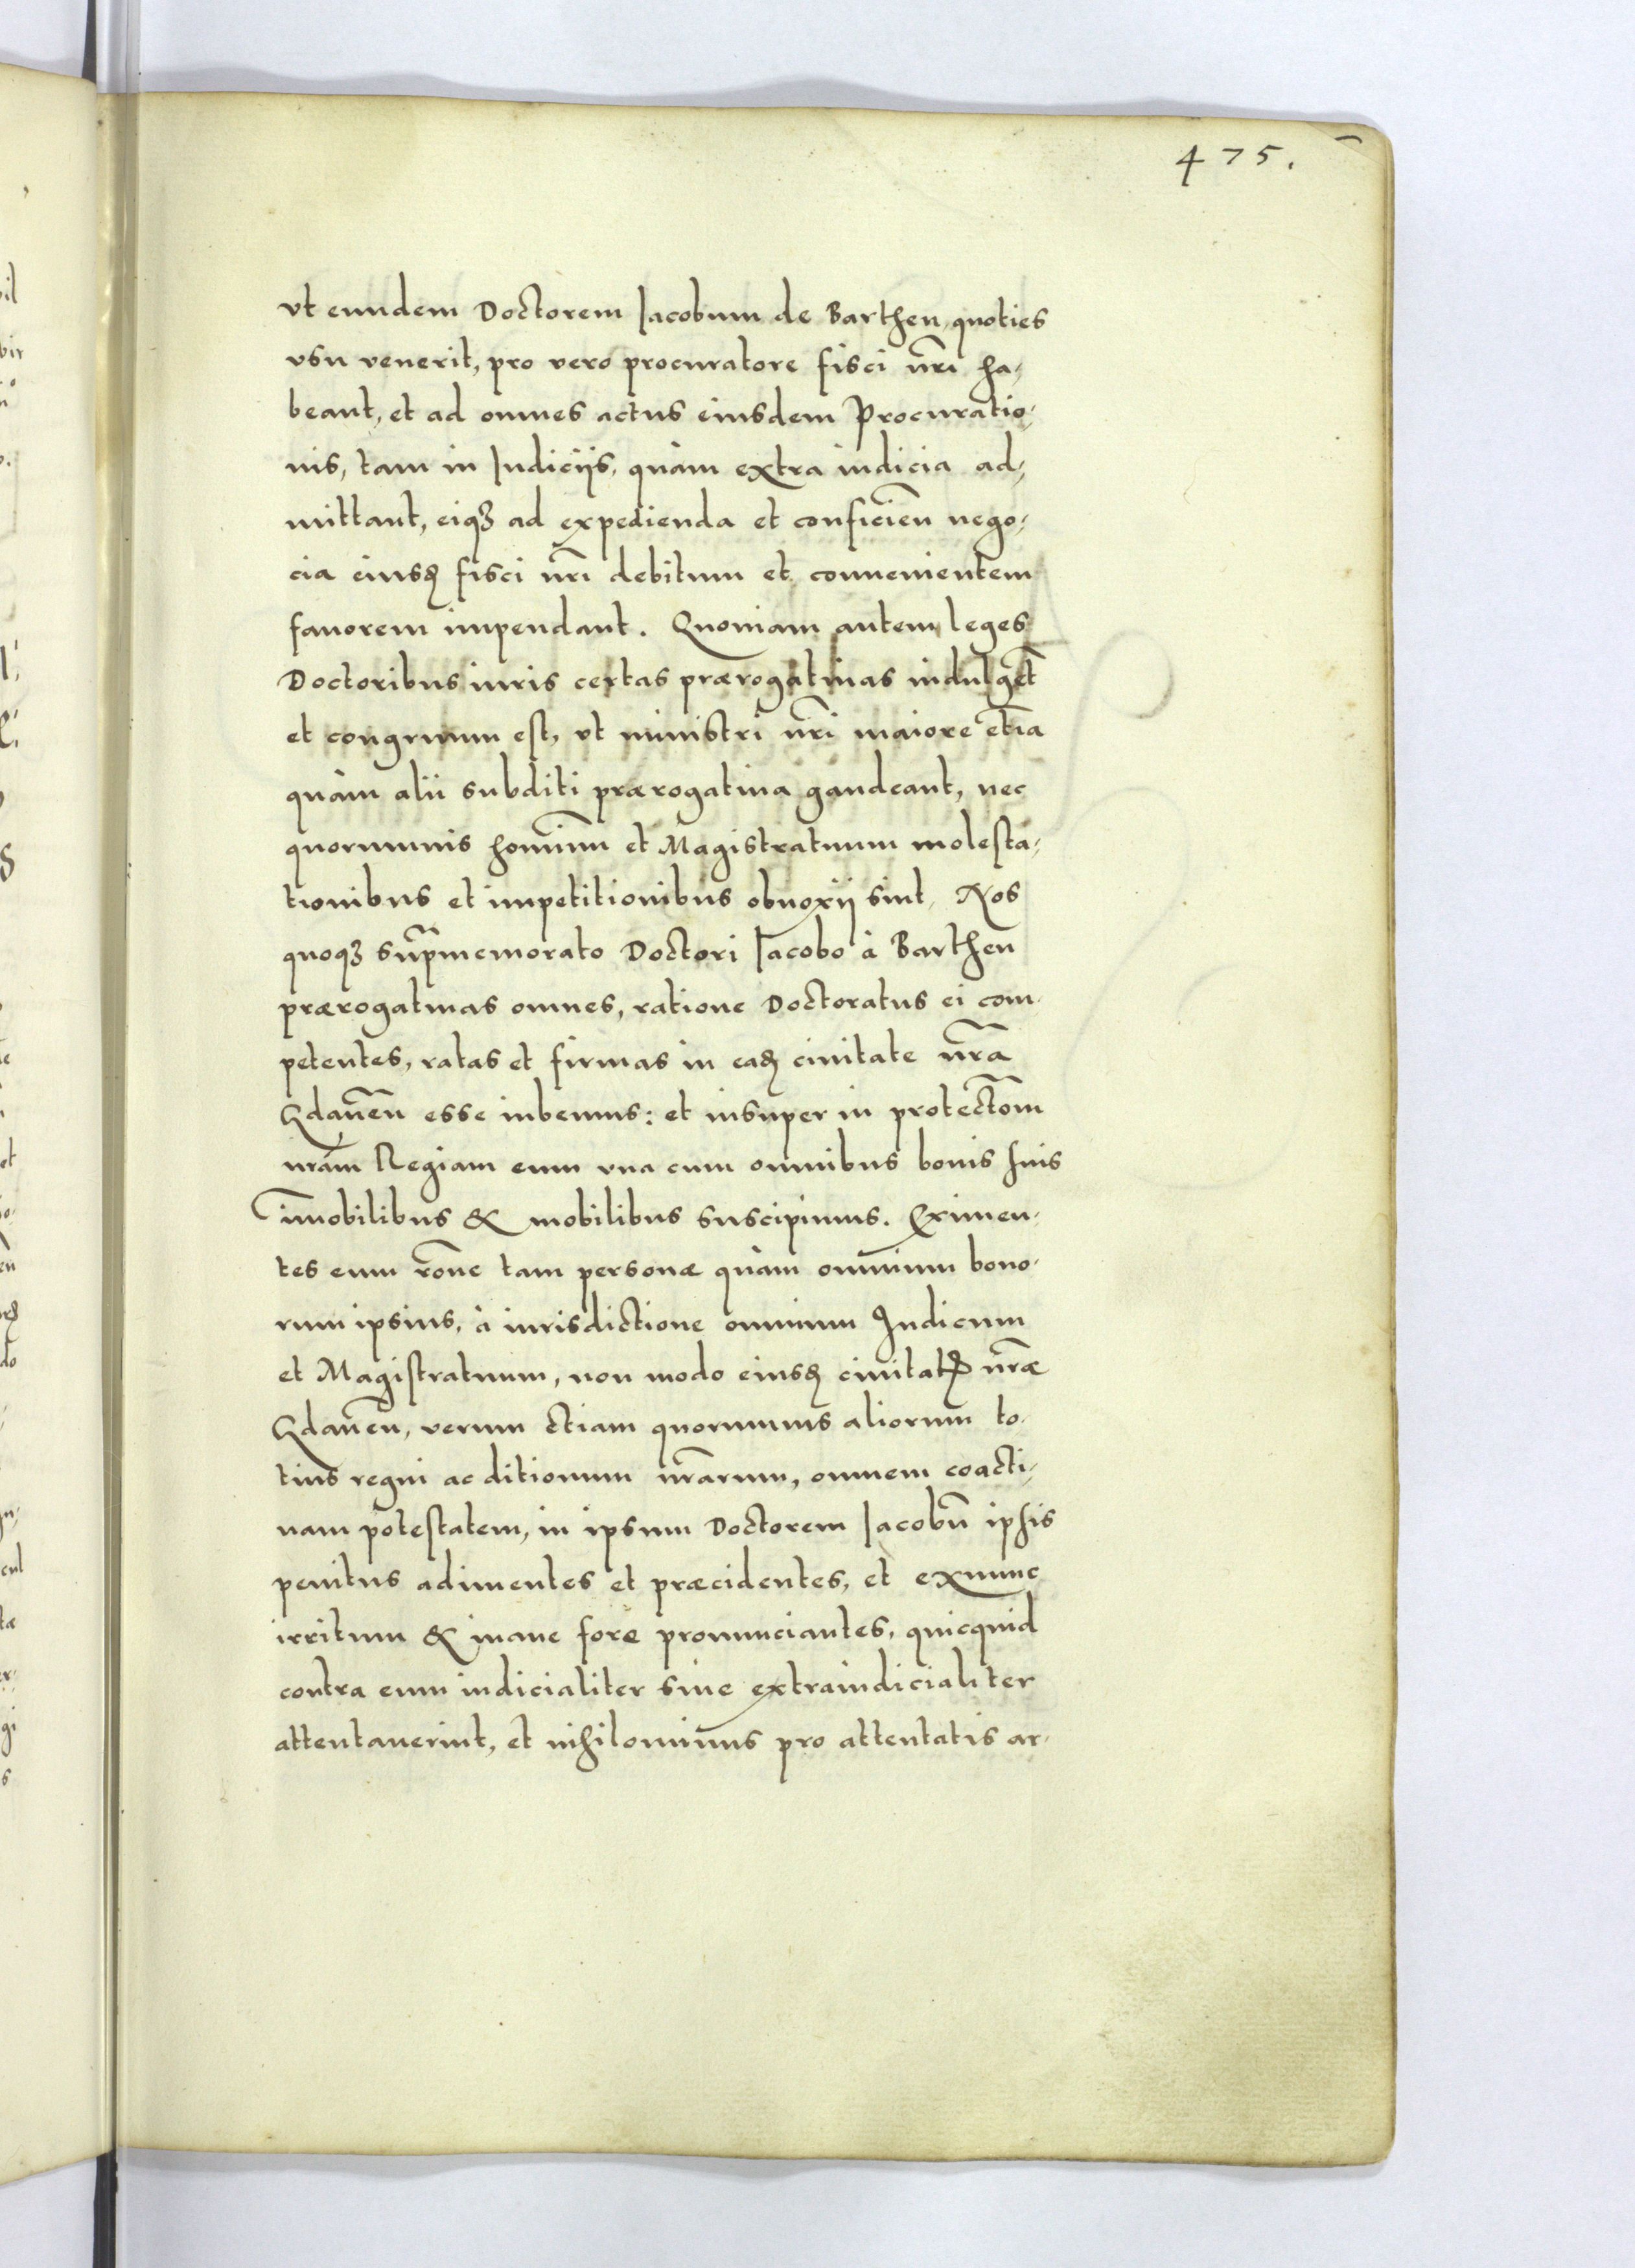 475.
vt eundem Doctorem Jacobum de Barthen, quoties
vsu venerit, pro vero procuratore fisci nr̃i ha,
beant, et ad omnes actus eiusdem Procuratio,
nis, tam in Judiciis, quàm extra iudicia ad,
mittant, eiqꝫ ad expedienda et conficien̄ nego,
cia eiusḍ fisci nr̃i debitum et conuenientem
fauorem impendant. Quoniam autem leges
Doctoribus iuris certas prærogatiuas indulgēt
et congruum est, vt ministri nr̃i maiore etīa
quàm alii subditi prærogatiua gaudeant, nec
quorumuis hominū et Magistratuum molesta,
tionibus et impetitionibus obnoxij sint, Nos
quoqꝫ supramemorato Doctori Jacobo à Barthen
prærogatiuas omnes, ratione Doctoratus ei com,
petentes, ratas et firmas in eaḍ ciuitate nr̃a
Gdanen̄ esse iubemus: et insuper in protectōm
nrãm Regiam eum vna cum omnibus bonis suis
īmobilibus & mobilibus suscipimus. Eximen,
tes eum rōne tam personæ quàm omnium bono,
rum ipsius, à iurisdictione omnium Judicum
et Magistratuum, non modo eiusḍ ciuitatꝭ nr̃æ
Gdanen̄, verum etiam quorumuis aliorum to,
tius regni ac ditionum nr̃arum, omnem coacti,
uam potestatem, in ipsum Doctorem Jacobū ipsis
penitus adimentes et præcidentes, et exnunc
irritum & inane fore pronunciantes, quicquid
contra eum iudicialiter siue extraiudicialiter
attentauerint, et nihilominus pro attentatis ar,